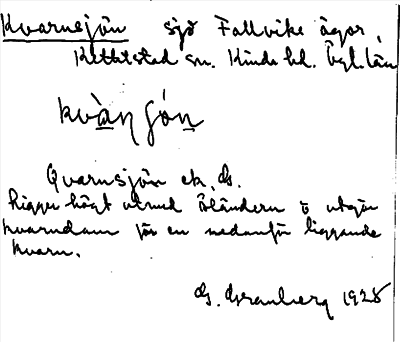 Kvarnsjön sjö Fallvike ägor,
Kettilstad sn. Kinda hd. Ögl. län
kvàṇ ʃóṇ
Qvarnsjön ek, ds.
Ligger högt utmed Ölandern o utgör
kvarndam för en nedanför liggande
kvarn.
G. Granberg 1928